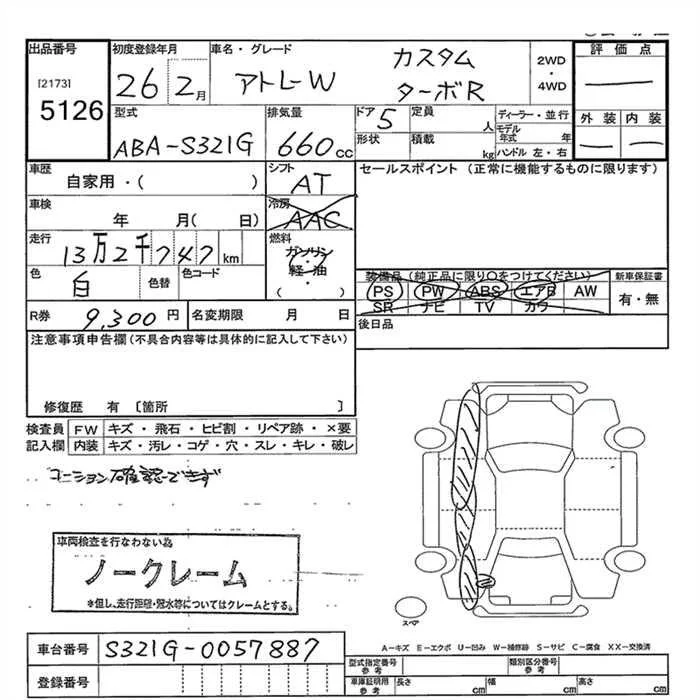 出品番号
[2173]
5126
初度登録年月
26 2月
車名・グレード
アトレーW
カスタム
ターボR
2WD
・
4WD
評価点
外装 内装
型式
ABA-S321G
排気量
660cc
ドア 5
形状
定員 人
積載 kg
ディーラー・並行
モデル年式 年
ハンドル 左・右
車歴
自家用・( )
シフト
AT
セールスポイント (正常に機能するものに限ります)
車検
年 月( 日)
冷房
AAC
走行
13万2千747km
燃料
ガソリン
・
軽油
( )
色
白
色替
色コード
装備品 (純正品に限り○をつけてください)
PS PW ABS エアB AW
SR ナビ TV カワ
新車保証書
有・無
R券 9,300円
名変期限 月 日
後日品
注意事項申告欄(不具合内容等は具体的に記入して下さい)
修復歴 有 [箇所 ]
検査員 FW キズ・飛石・ヒビ割・リペア跡・×要
記入欄 内装 キズ・汚レ・コゲ・穴・スレ・キレ・破レ
コーション確認できず
車両検査を行なわない為
ノークレーム
*但し、走行距離・冠水等についてはクレームとする。
スペア
A-キズ E-エクボ U-凹み W-補修跡 S-サビ C-腐食 XX-交換済
車台番号 S321G-0057887
登録番号
型式指定番号 参考
類別区分番号 参考
車庫証明用 参考
長さ cm 幅 cm 高さ cm